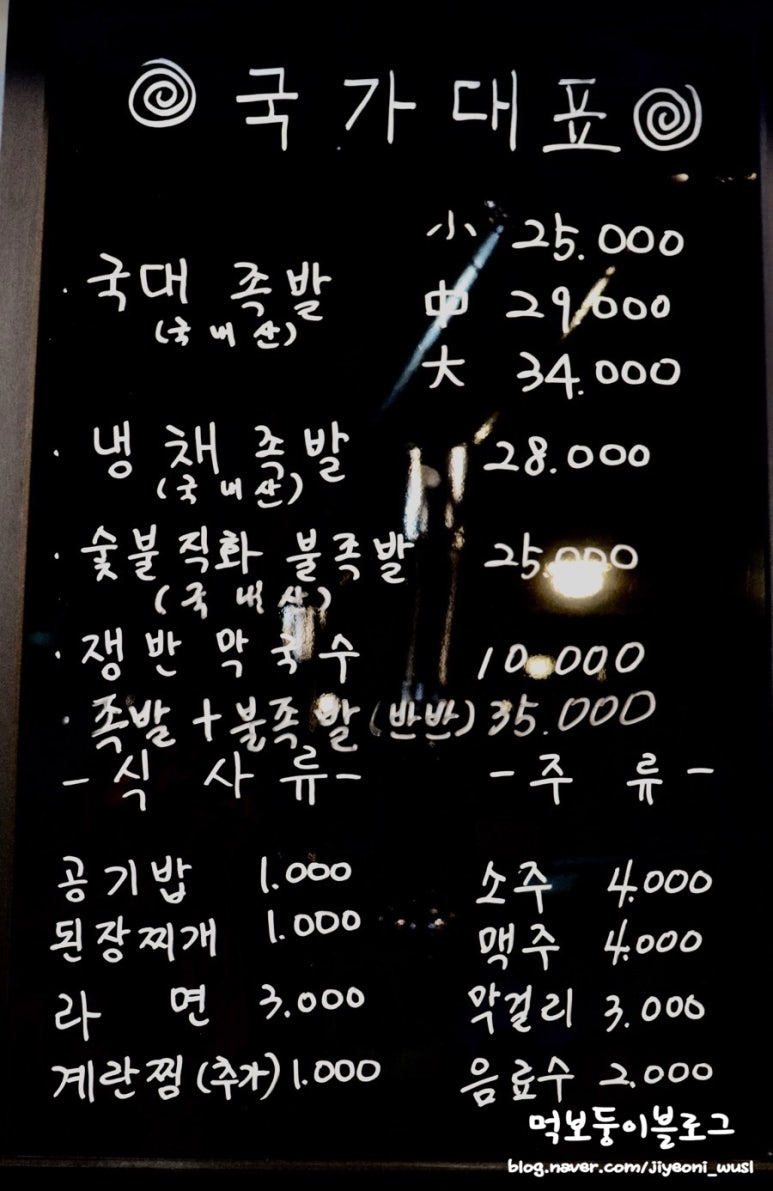 국가대표
국대 족발 小 25.000
(국내산) 中 29.000
大 34.000
냉채족발 28.000
(국내산)
숯불직화 불족발 25.000
(국내산)
쟁반막국수 10.000
족발+불족발(반반) 35.000
-식사류- -주류-
공기밥 1.000 소주 4.000
된장찌개 1.000 맥주 4.000
라면 3.000 막걸리 3.000
계란찜(추가) 1.000 음료수 2.000
먹보둥이블로그
blog.naver.com/jiyeoni_wusl